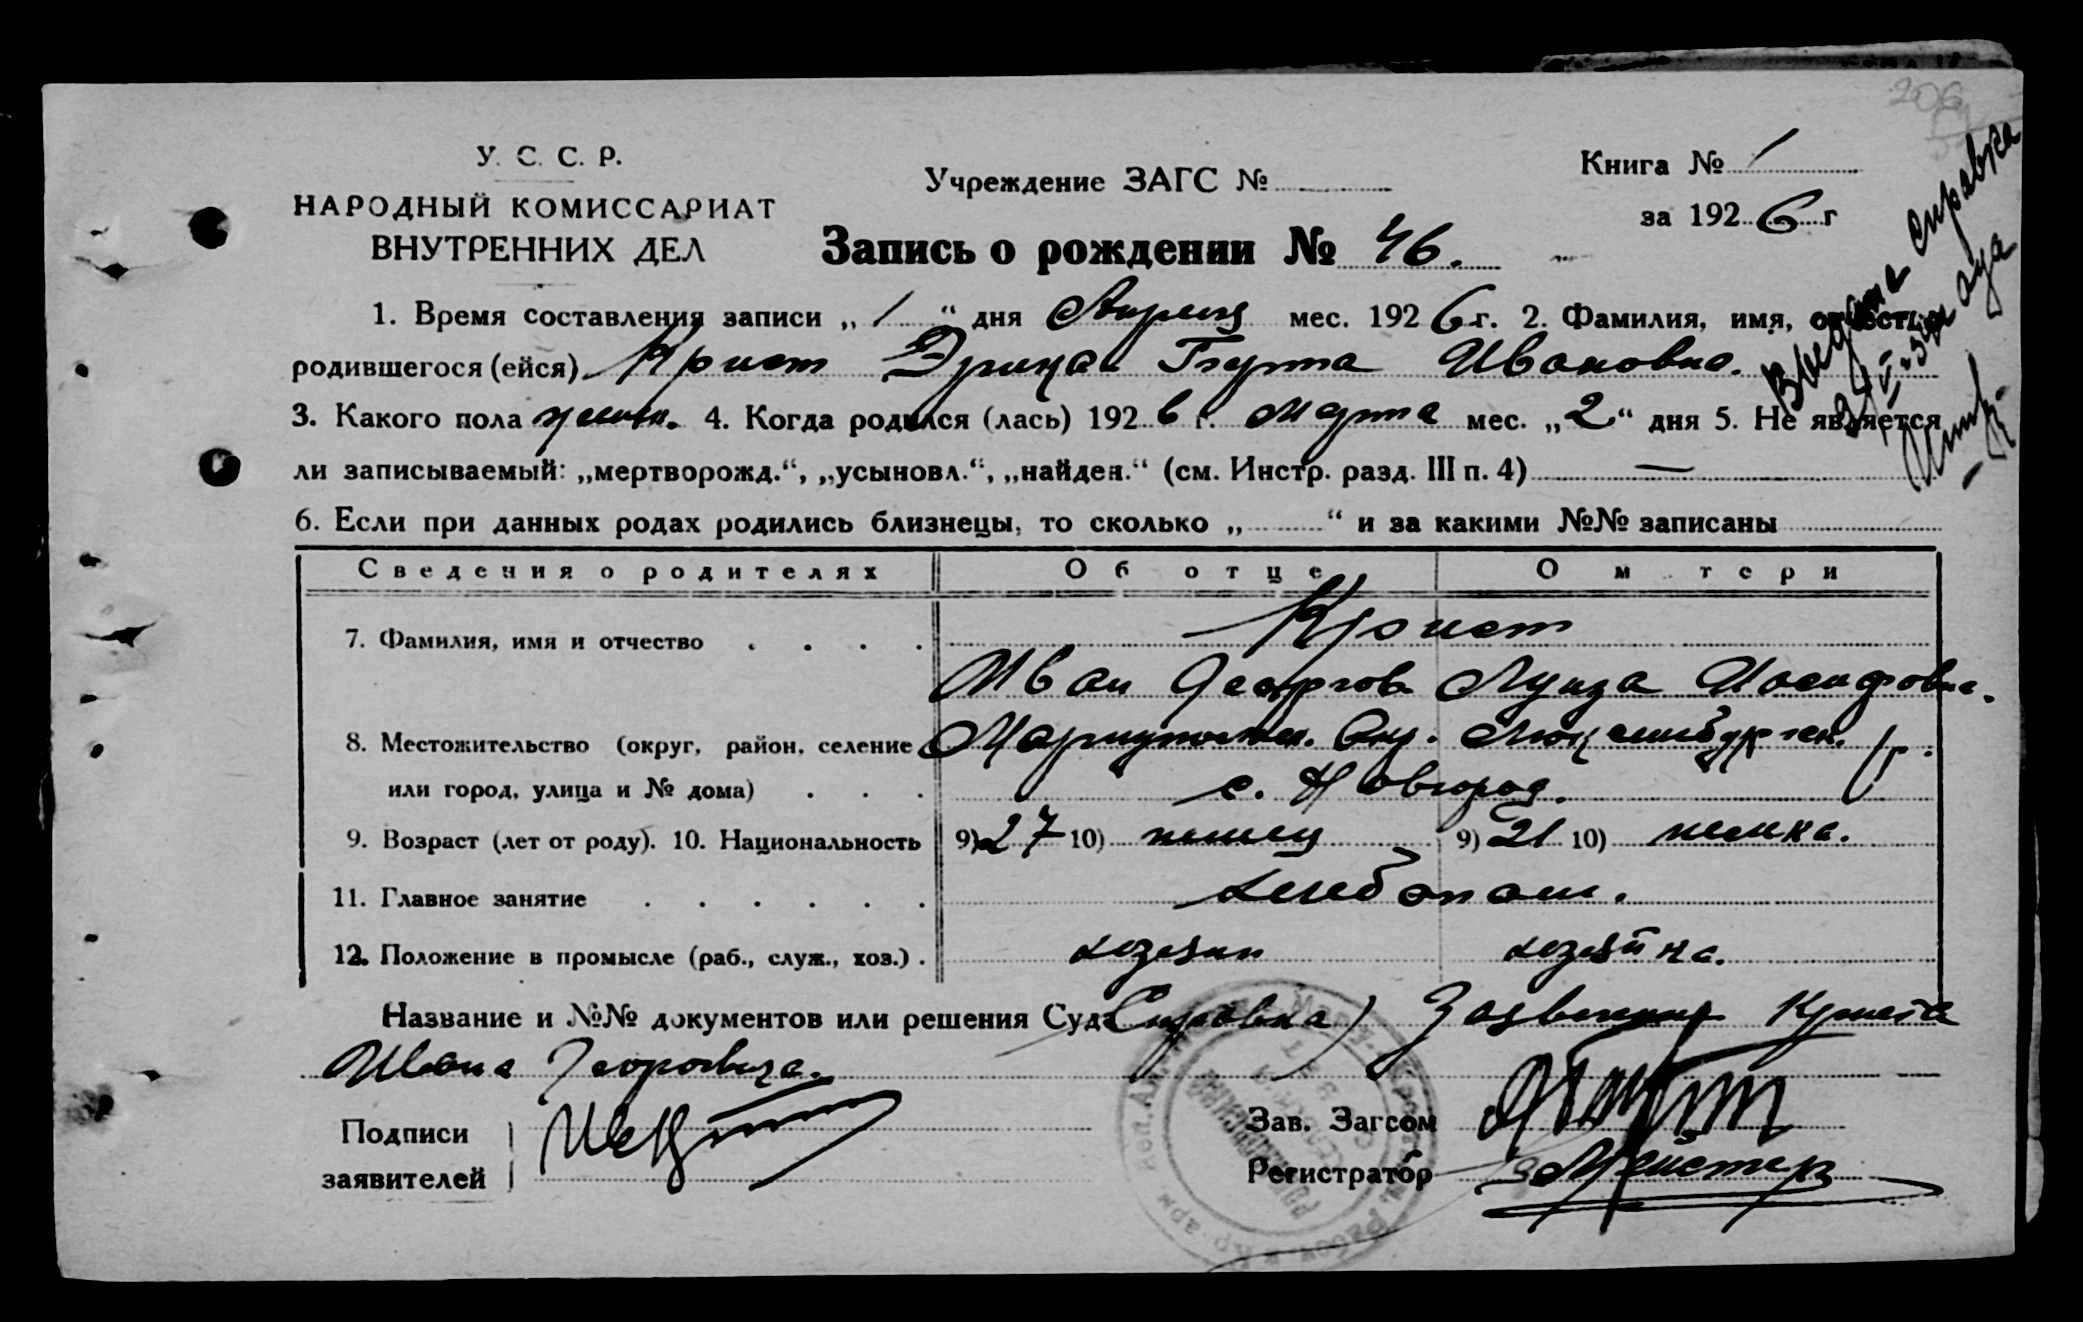 206
У. С. С. Р.
НАРОДНЫЙ КОМИССАРИАТ
ВНУТРЕННИХ ДЕЛ
Учреждение ЗАГС №
Книга № 1
за 1926 г
Запись о рождении № 46.
Выдана справка
1. Время составления записи „1“ дня Апреля мес. 1926 г. 2. Фамилия, имя, отчество
родившегося (ейся) Крист Эрика Ивановна.
3. Какого пола женск. 4. Когда родился (лась) 1926 г. Марта мес. „2“ дня 5. Не является
ли записываемый: „мертворожд.“, „усыновл.“, „найден.“ (см. Инстр. разд. III п. 4) —
6. Если при данных родах родились близнецы, то сколько „ “ и за какими №№ записаны
Сведения о родителях Об отце О м тери
7. Фамилия, имя и отчество Крист
Иван Георгов. Луиза Иосифовна.
8. Местожительство (округ, район, селение Мариупольск. Окр. Люксембургск. р.
или город, улица и № дома) с. Новгород.
9. Возраст (лет от роду). 10. Национальность 9) 27 10) немец 9) 21 10) немка.
11. Главное занятие хлебопаш.
12. Положение в промысле (раб., служ., хоз.) хозяин хозяйка.
Название и №№ документов или решения Суда Справка) Заявление Криста
Ивана Георгевича.
Подписи
заявителей
Зав. Загсом
Регистратор Мейстер